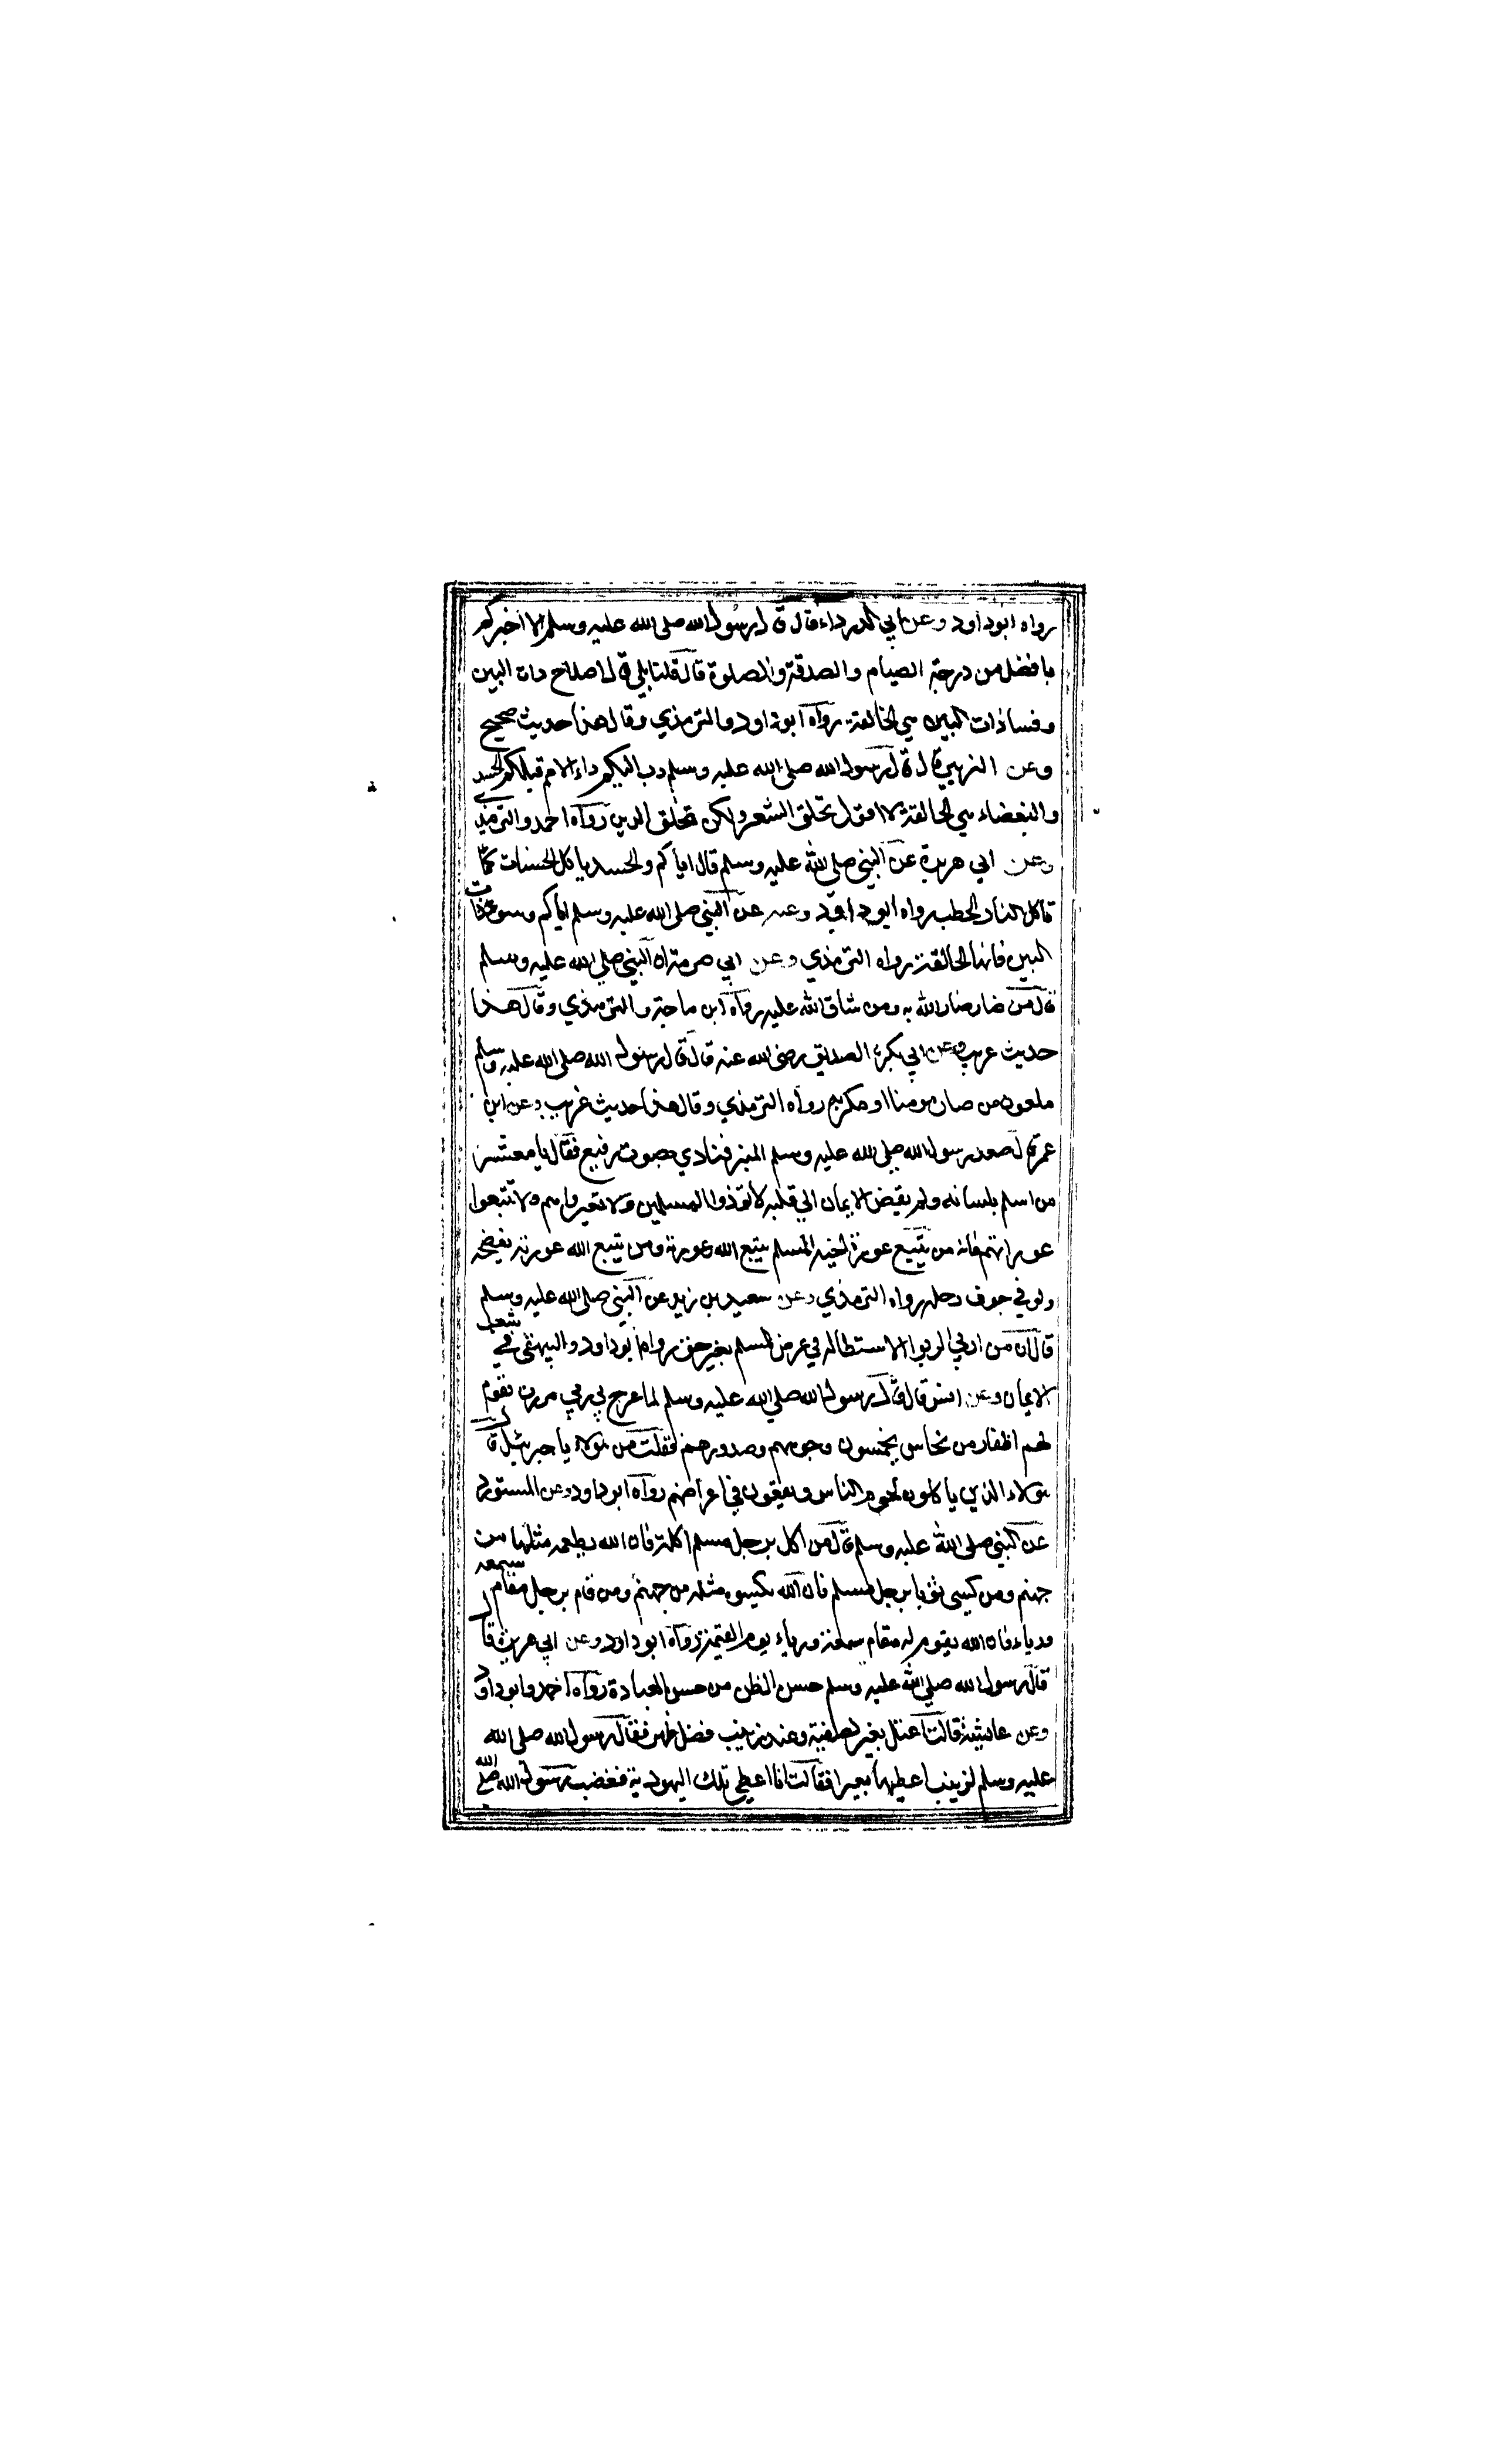 رواه ابوداود وعن ابي الدرداء قال قال رسول الله صلى الله عليه وسلم الا اخبركم
بافضل من درجة الصيام والصدقة والصلوة قال قلنا بلى قال اصلاح ذات البين
وفساد ذات البين هي الحالقة رواه ابوداود والترمذي وقال هذا حديث صحيح
وعن الزبير قال قال رسول الله صلى الله عليه وسلم دب اليكم داء الامم قبلكم الحسد
والبغضاء هي الحالقة لا اقول تحلق الشعر ولكن تحلق الدين رواه احمد والترمذي
وعن ابي هريرة عن النبي صلى الله عليه وسلم قال اياكم والحسد يا كل الحسنات كما
تاكل النار الحطب رواه ابوداود وعنه عن النبي صلى الله عليه وسلم اياكم وسوء ذات
البين فانها الحالقة رواه الترمذي وعن ابي صرمة ان النبي صلى الله عليه وسلم
قال من ضار ضار الله به ومن شاق شاق الله عليه رواه ابن ماجة والترمذي وقال هذا
حديث غريب وعن ابي بكر الصديق رضى الله عنه قال قال رسول الله صلى الله عليه وسلم
ملعون من ضار مومنا او مكر به رواه الترمذي وقال هذا حديث غريب وعن ابن
عمر قال صعد رسول الله صلى الله عليه وسلم المنبر فنادي بصوت رفيع فقال يا معشر
من اسلم بلسانه ولم يفض الايمان الي قلبه لا توذوا المسلمين ولا تعيروهم ولا تتبعوا
عوراتهم فانه من يتبع عورة اخيه المسلم يتبع الله عورته ومن يتبع الله عورته يفضحه
ولو في جوف رحله رواه الترمذي وعن سعيد بن زيد عن النبي صلى الله عليه وسلم
قال ان من اربي الربوا الاستطالة في عرض المسلم بغير حق رواه ابوداود والبيهقي في شعب
الايمان وعن انس قال قال رسول الله صلى الله عليه وسلم لما عرج بي ربي مررت بقوم
لهم اظفار من نحاس يخمسون وجوههم وصدورهم فقلت من هولاء يا جبرئيل قال
هولاء الذين ياكلون لحوم الناس ويقعون في اعراضهم رواه ابوداود وعن المستورد
عن النبي صلى الله عليه وسلم قال من اكل برجل مسلم اكلة فان الله يطعمه مثلها من
جهنم ومن كسى ثوبا برجل مسلم فان الله يكسوه مثله من جهنم ومن قام برجل مقام سمعه
ورياء فان الله يقوم له مقام سمعة ورياء يوم القيمة رواه ابوداود وعن ابي هريرة قال
قال رسول الله صلى الله عليه وسلم حسن الظن من حسن العبادة رواه احمد وابوداود
وعن عايشة قالت اعتل بعير لصفية وعند زينب فضل ظهر فقال رسول الله صلى الله
عليه وسلم لزينب اعطيها بعيرا فقالت انا اعطي تلك اليهودية فغضب رسول الله صلى الله